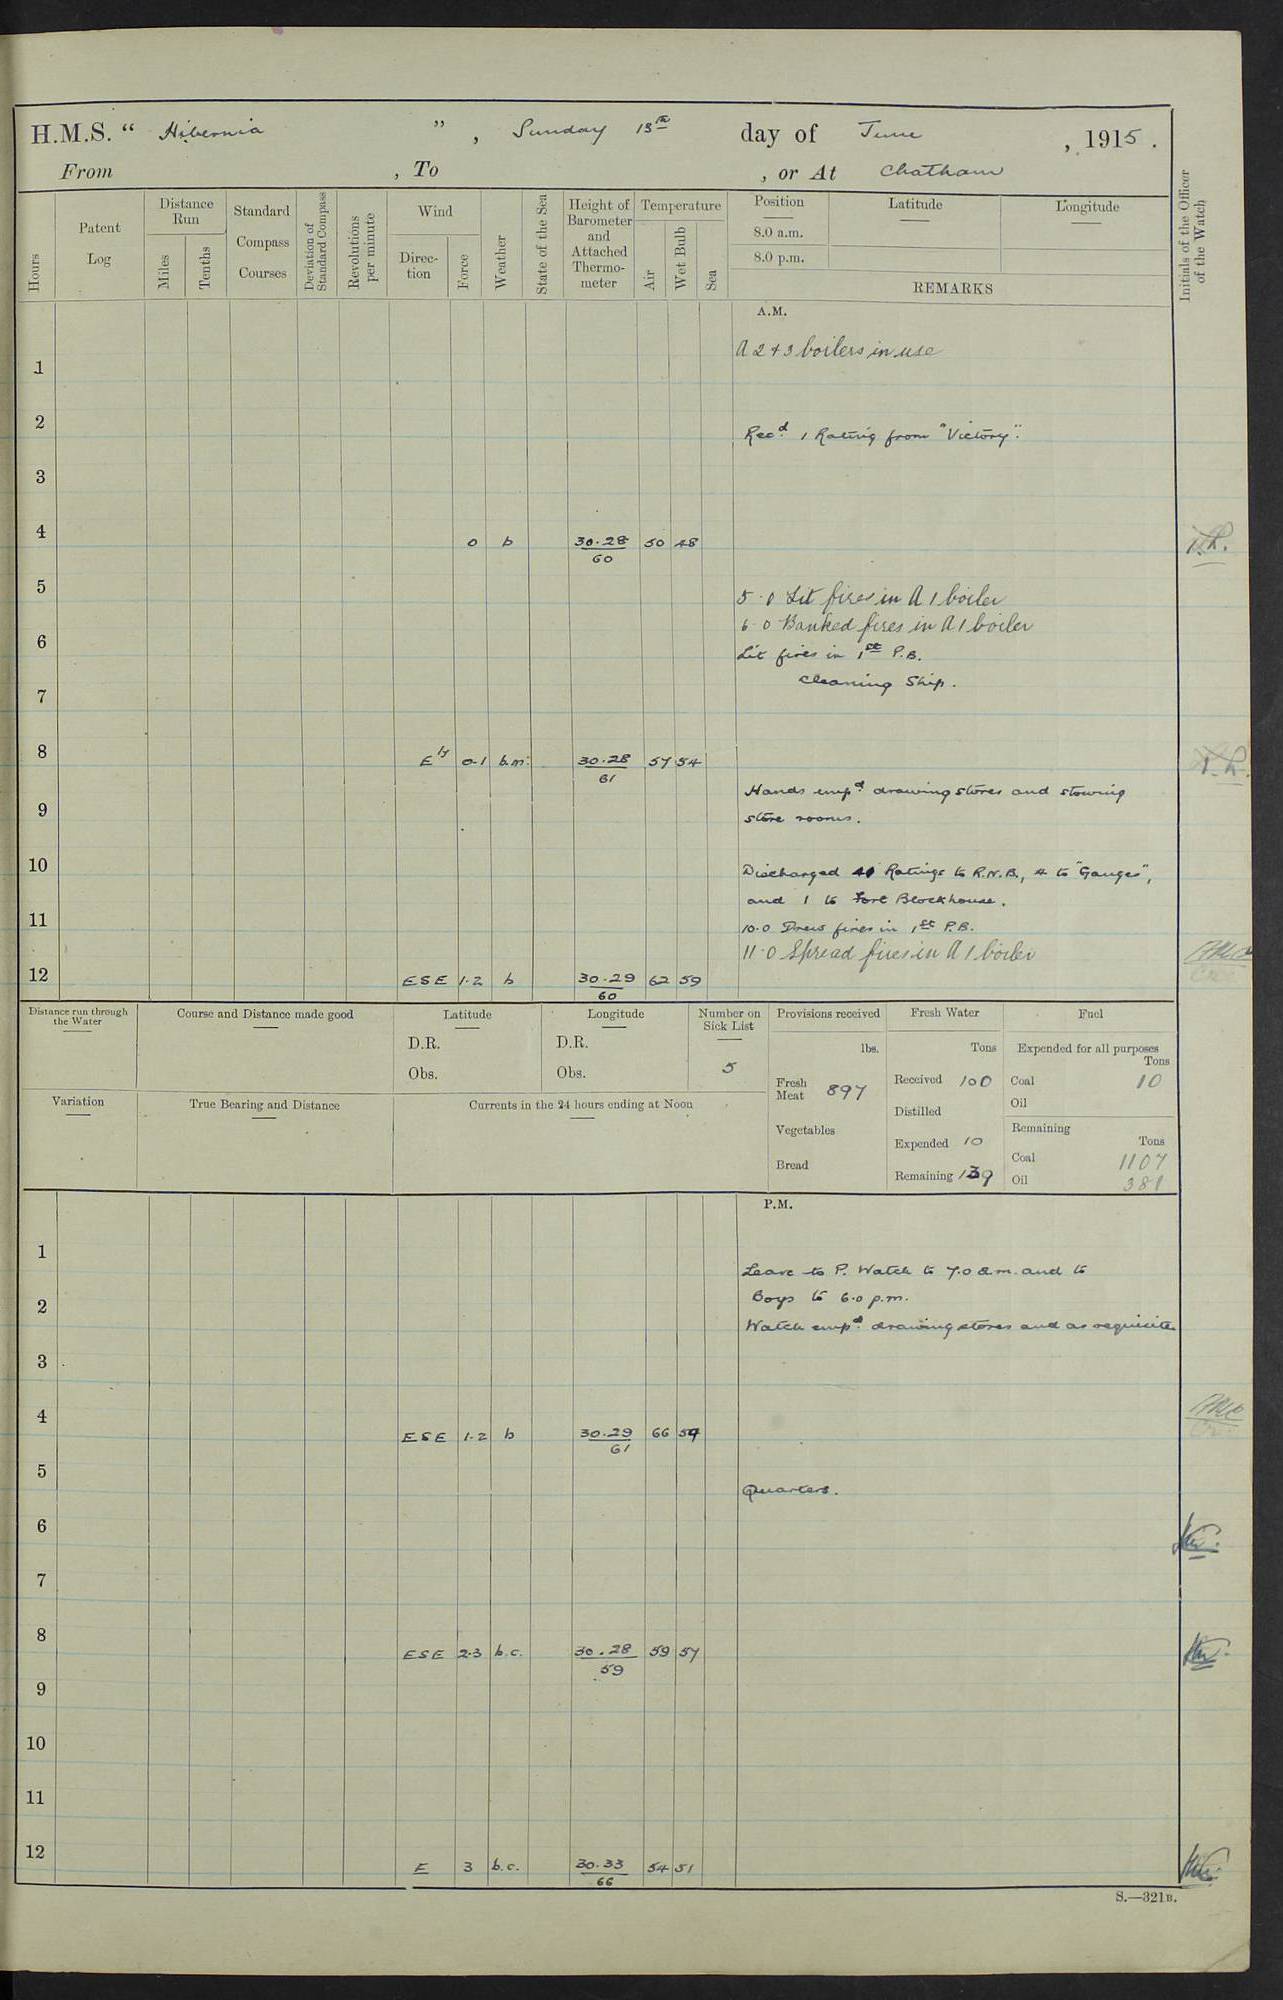 H.M.S. “ Hibernia ” , Sunday 13th day of June , 1915 .
From , To , or At Chatham
Hours
Patent Log
Distance Run
Miles
Tenths
Standard Compass Courses
Deviation of Standard Compass
Revolutions per minute
Wind
Direction
Force
Weather
State of the Sea
Height of Barometer and Attached Thermometer
Temperature
Air
Wet Bulb
Sea
Position
8.0 a.m.
8.0 p.m.
Latitude
Longitude
REMARKS
Initials of the Officer of the Watch
A.M.
1
A 2 + 3 boilers in use
2
Recd. 1 Rating from "Victory".
3
4 0 b 30.28 60 50 48
5
5.0 Lit fires in A 1 boiler
6.0 Banked fires in A 1 boiler
6
Lit fires in 1st P.B.
Cleaning Ship.
7
8 Ely 0-1 b.m. 30.28 61 57 54
Hands empd. drawing stores and stowing
9
store rooms.
10
Discharged Ratings to R.N.B., 4 to "Ganges",
and 1 to Fort Blockhouse.
11
10.0 Drew fires in 1st P.B.
11.0 Spread fires in A 1 boiler
12 ESE 1.2 b 30.29 60 62 59
Distance run through the Water
Course and Distance made good
Latitude
D.R.
Obs.
Longitude
D.R.
Obs.
Number on Sick List
5
Provisions received
lbs.
Fresh Meat 897
Vegetables
Bread
Fresh Water
Tons
Received 100
Distilled
Expended 10
Remaining 139
Fuel
Expended for all purposes
Tons
Coal 10
Oil
Remaining
Tons
Coal 1107
Oil 381
Variation
True Bearing and Distance
Currents in the 24 hours ending at Noon
P.M.
1
Leave to P. Watch to 7.0 a.m. and to
Boys to 6.0 p.m.
2
Watch empd. drawing stores and as requisite
3
4 ESE 1.2 b 30.29 61 66 59
5
Quarters.
6
7
8 ESE 2.3 b.c. 30.28 59 59 57
9
10
11
12 E 3 b.c. 30.33 66 54 51
S.—321B.